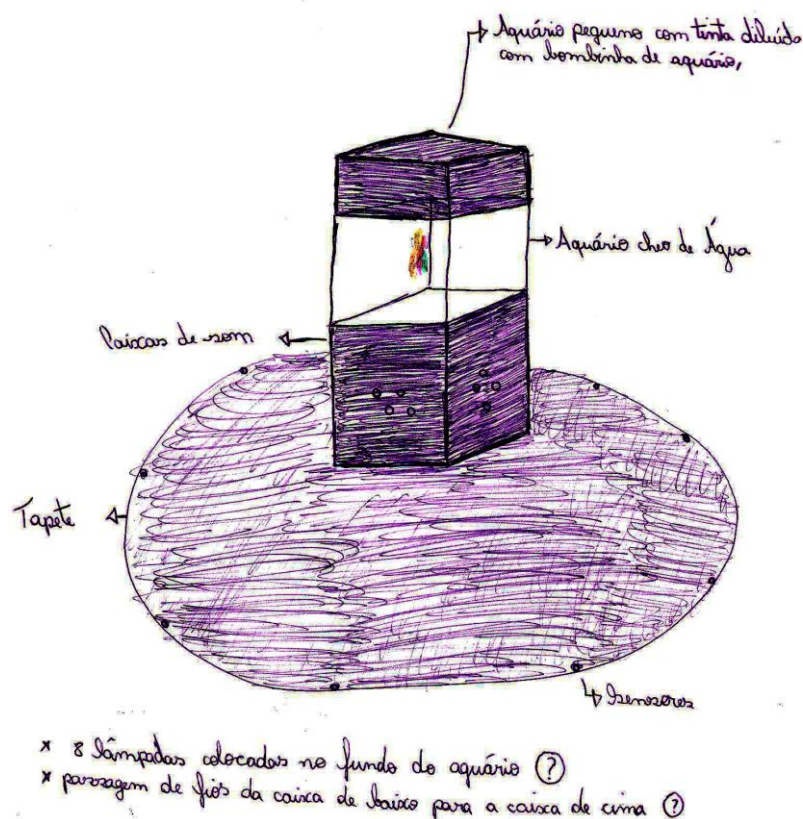 Aquário pequeno com tinta diluída
com bombinha de aquário,
Aquário cheo de Água
Caixas de som
Tapete
Sensores
* 8 lâmpadas colocadas no fundo do aquário ?
* passagem de fios da caixa de baixo para a caixa de cima ?